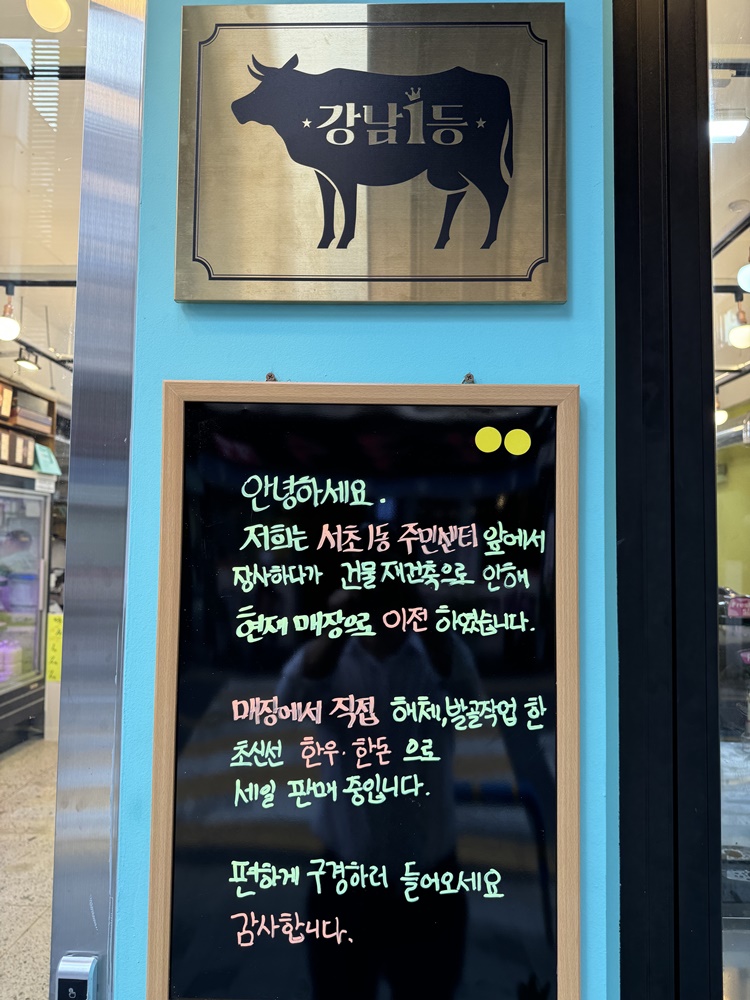 강남1등
안녕하세요.
저희는 서초1동 주민센터 앞에서
장사하다가 건물 재건축으로 인해
현재 매장으로 이전 하였습니다.
매장에서 직접 해체,발골작업 한
초신선 한우·한돈 으로
세일 판매 중입니다.
편하게 구경하러 들어오세요
감사합니다.